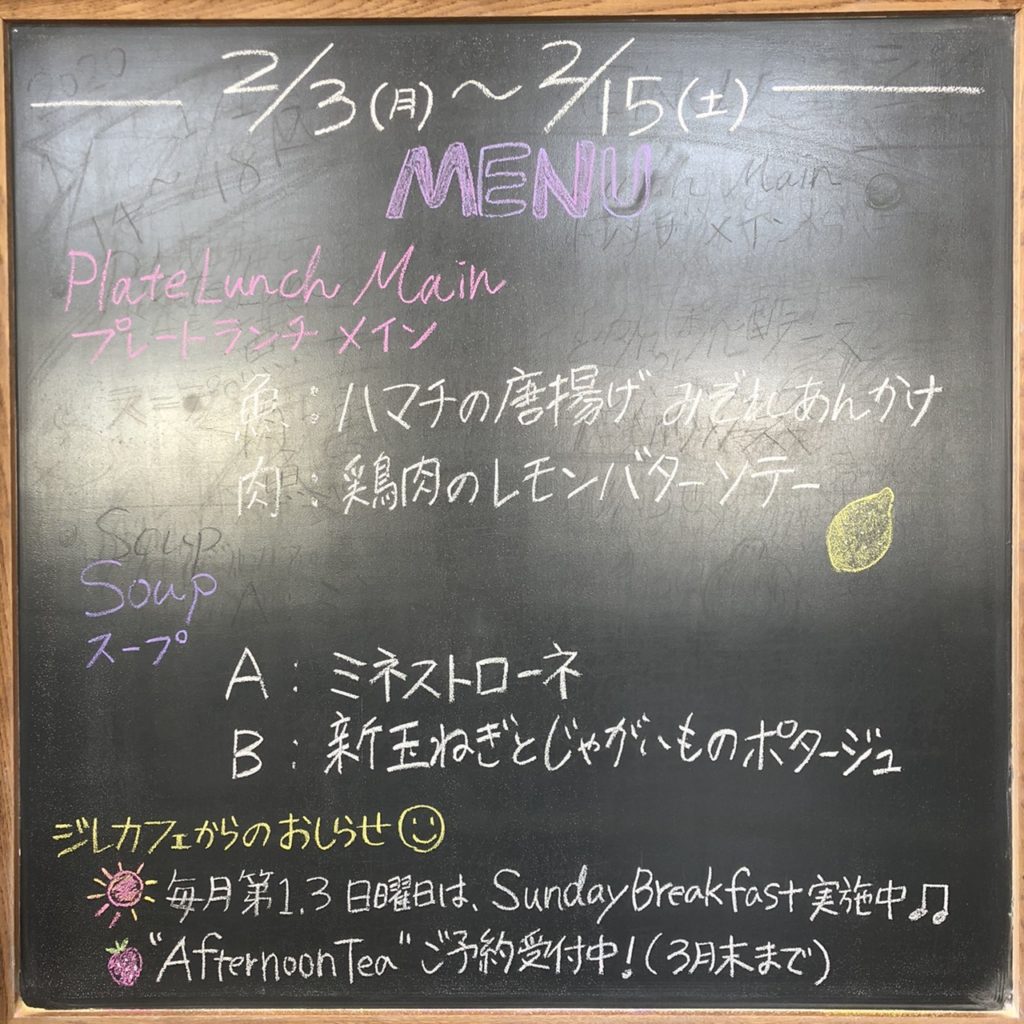 2/3(月)～2/15(土)
MENU
Plate Lunch Main
プレートランチ メイン
魚：ハマチの唐揚げ みぞれあんかけ
肉：鶏肉のレモンバターソテー
Soup
Soup
スープ
A：ミネストローネ
B：新玉ねぎとじゃがいものポタージュ
ジレカフェからのおしらせ
毎月第1.3日曜日は、Sunday Breakfast実施中♫
"Afternoon Tea"ご予約受付中！(3月末まで)